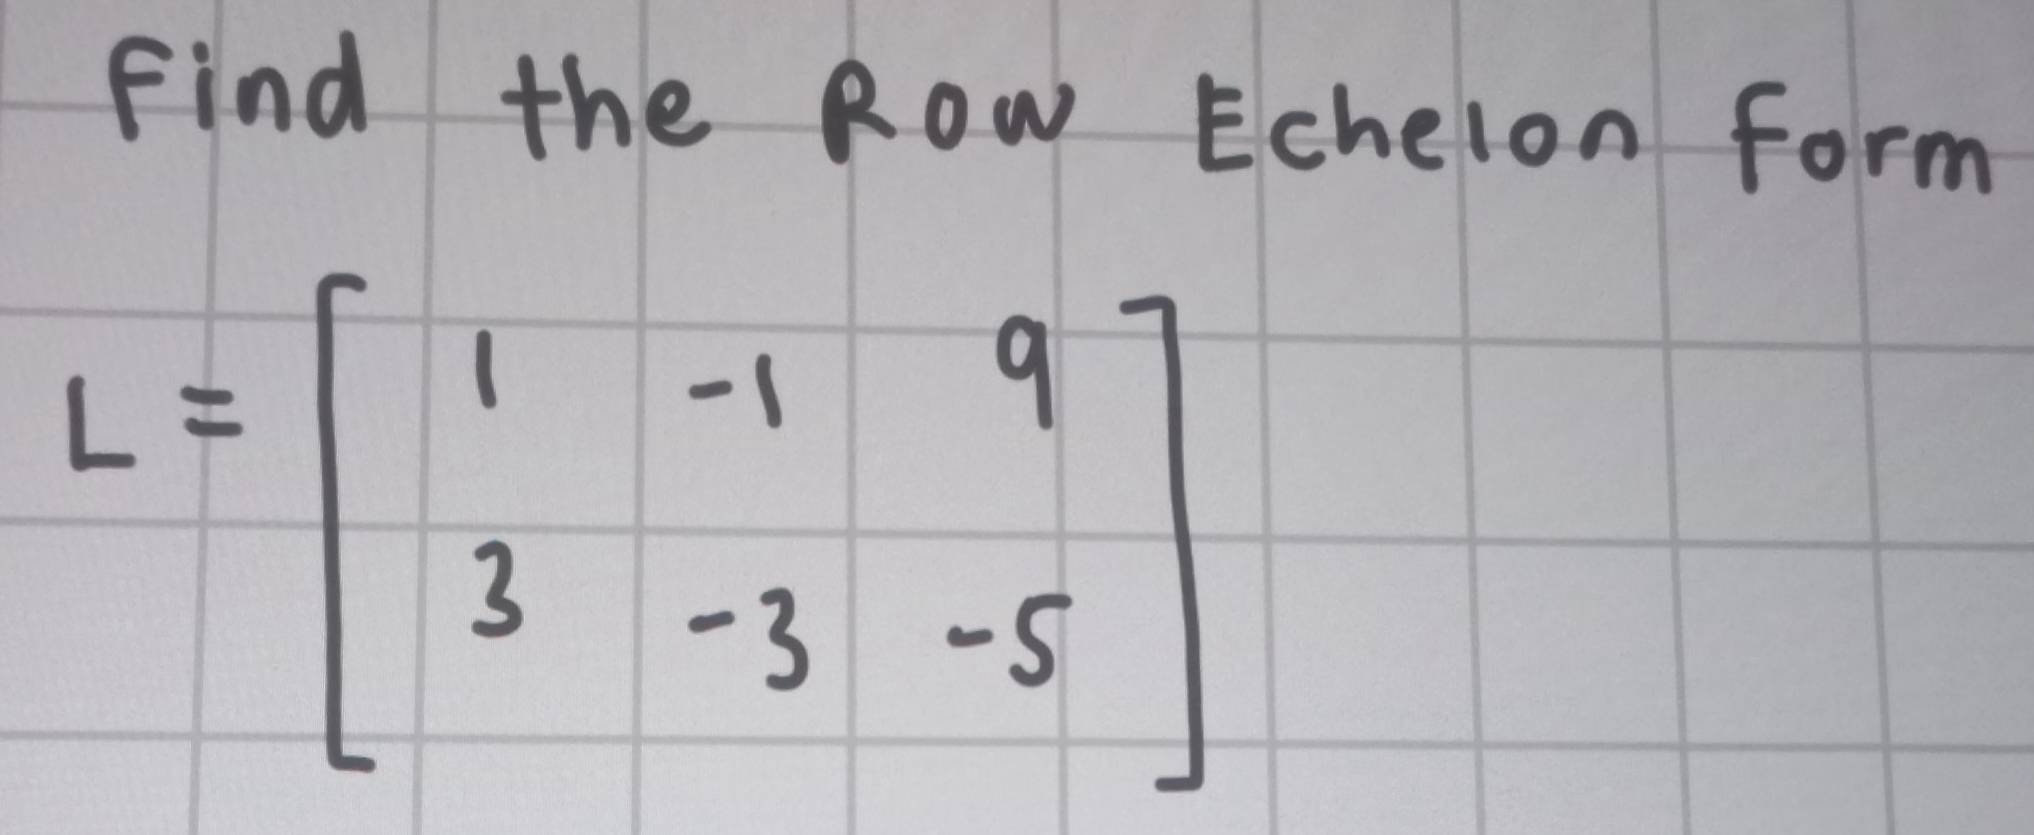 Find the Row Echelon form
L = [ 1 -1 9
3 -3 -5 ]